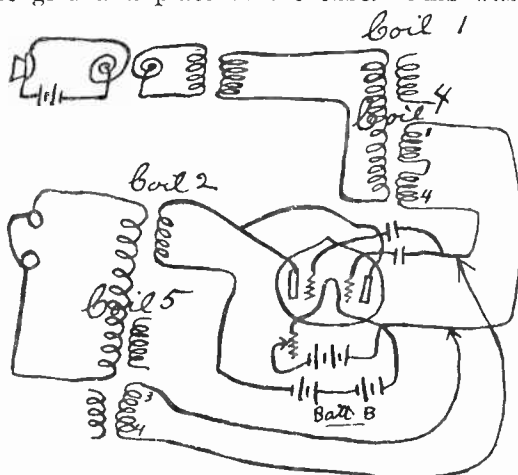 Coil 1
4
Coil
1
4
Coil 2
Coil 5
3
4
Batt B